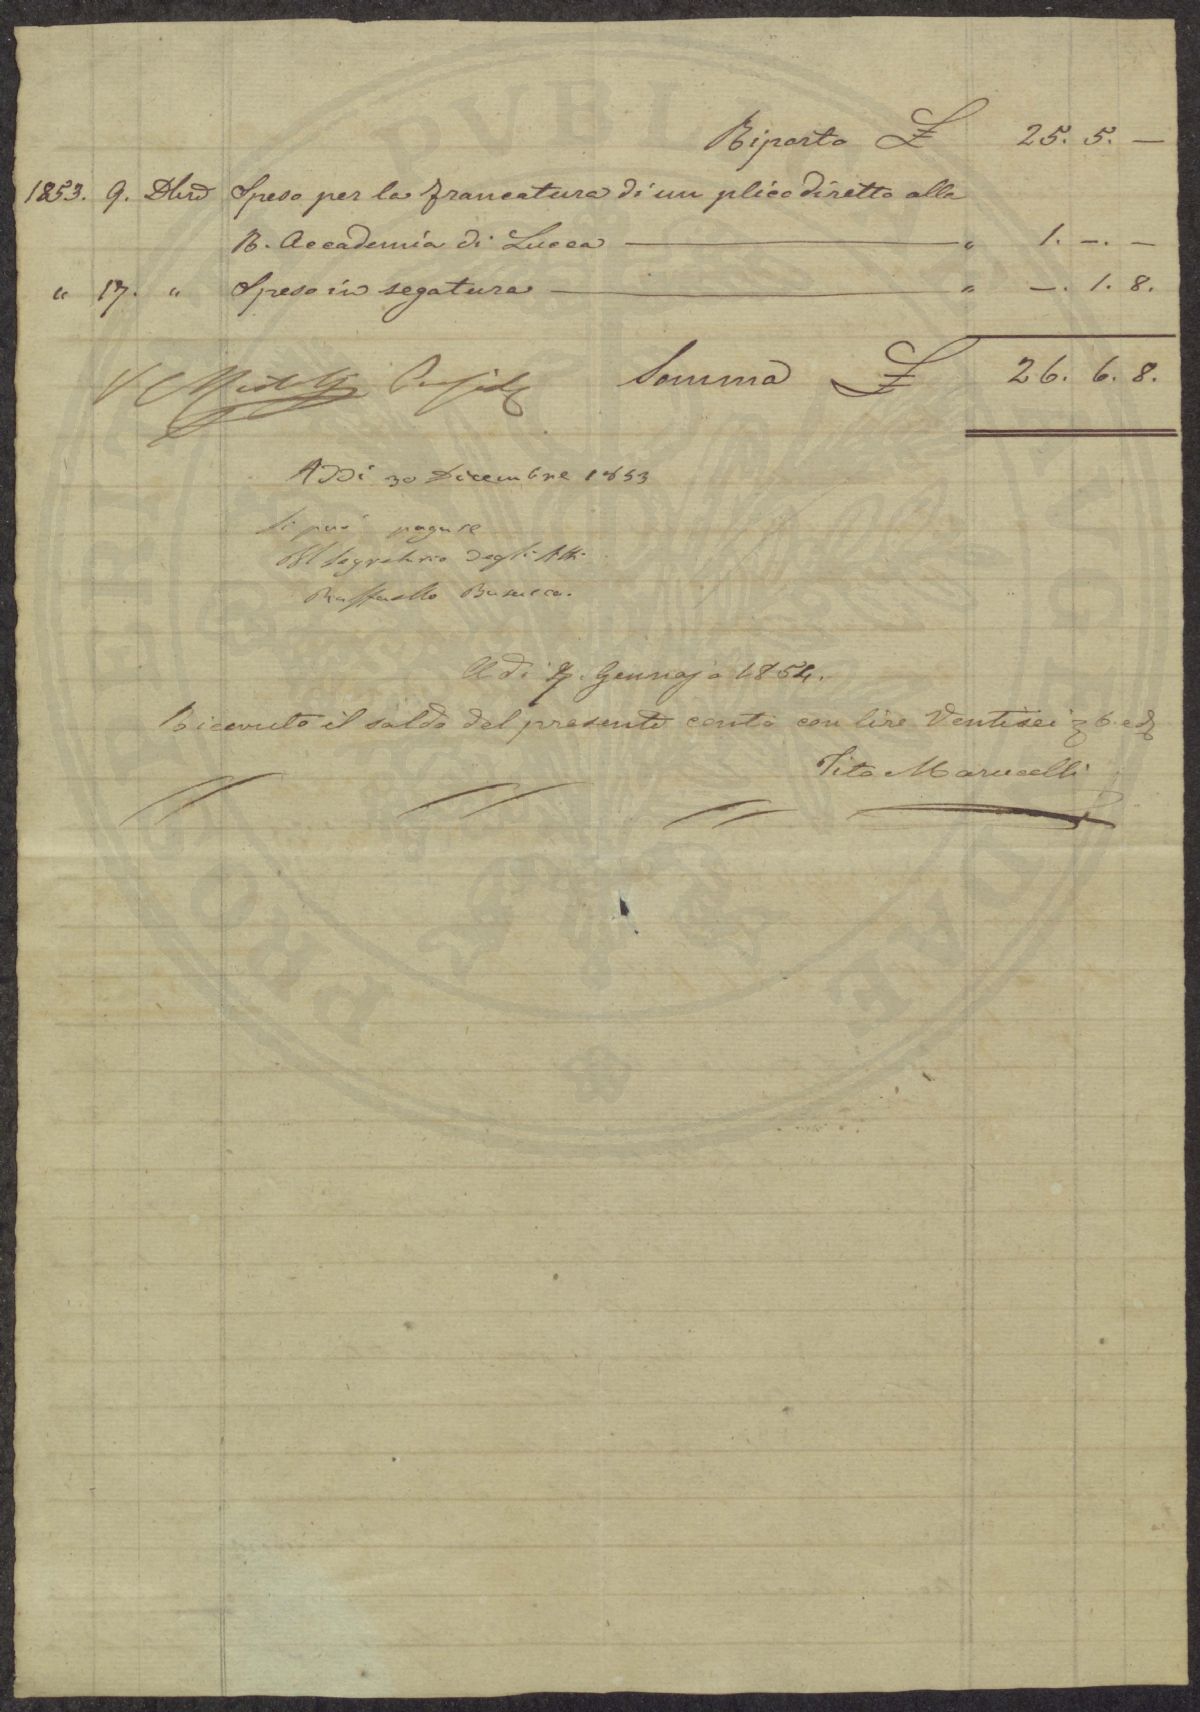 Riporto £ 25. 5. —
1853. 9. Dbre Speso per la francatura di un plico diretto alla
R. Accademia di Lucca — " 1. —. —
" 17. " Speso in segatura — " —. 1. 8.
Somma £ 26. 6. 8.
Addì 30 Dicembre 1853
Si può pagare
Il Segretario degli Atti
Raffaello Busacca.
A dì 7. Gennajo 1854.
Ricevuto il saldo del presente conto con lire Ventisei 6. e 8
Tito Marucelli